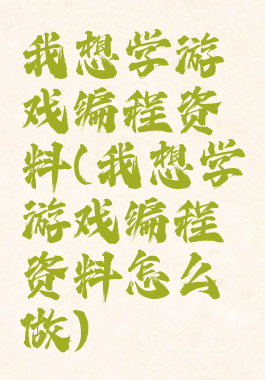 我想学游
戏编程资
料(我想学
游戏编程
资料怎么
做)